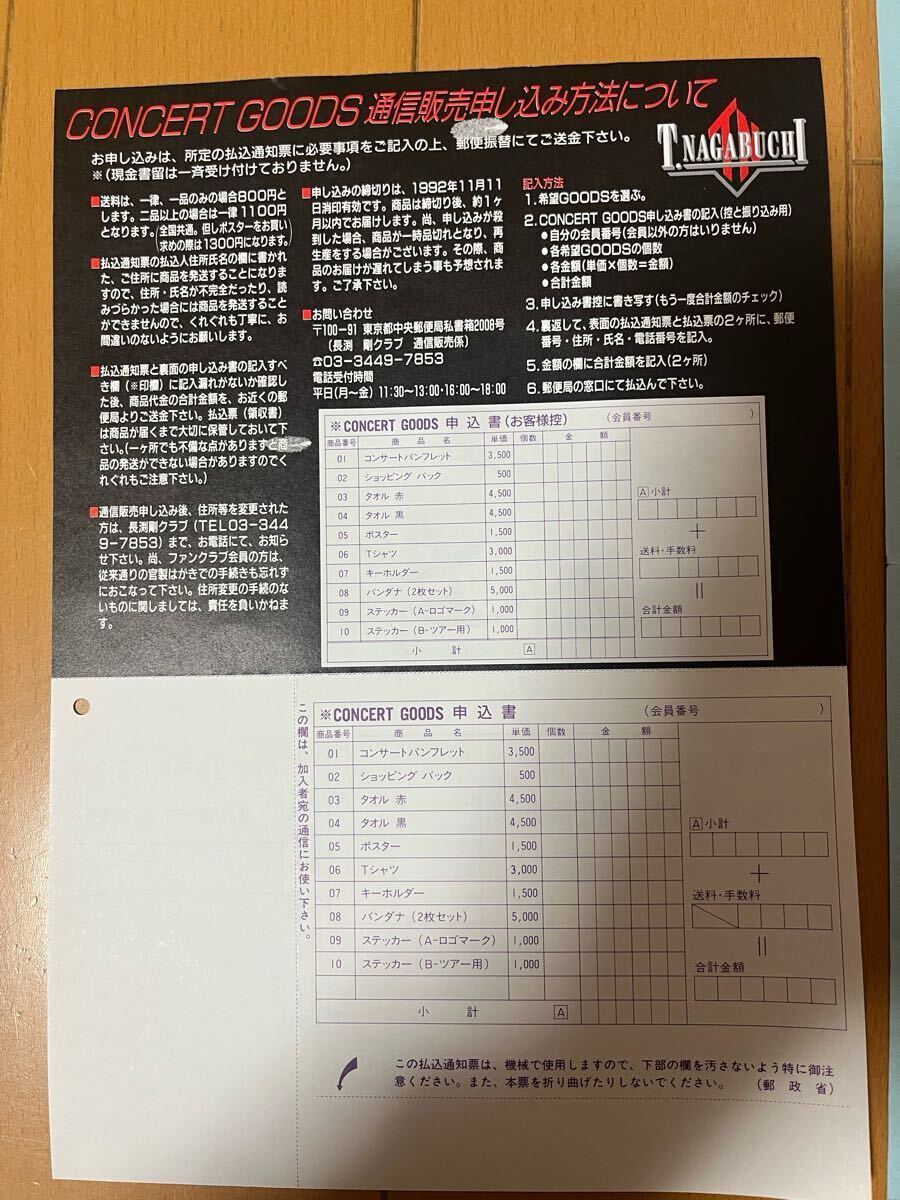 CONCERT GOODS 通信販売申し込み方法について
お申し込みは、所定の払込通知票に必要事項をご記入の上、郵便振替にてご送金下さい。
※(現金書留は一斉受け付けておりません。)
T.NAGABUCHI
■送料は、一律、一品のみの場合800円と
します。二品以上の場合は一律1100円
となります。(全国共通。但しポスターをお買い
求めの際は1300円になります。)
■払込通知票の払込人住所氏名の欄に書かれ
た、ご住所に商品を発送することになりま
すので、住所・氏名が不完全だったり、読
みづらかった場合には商品を発送すること
ができませんので、くれぐれも丁寧に、お
間違いのないようにお願いします。
■払込通知票と裏面の申し込み書の記入すべ
き欄(※印欄)に記入漏れがないか確認し
た後、商品代金の合計金額を、お近くの郵
便局よりご送金下さい。払込票(領収書)
は商品が届くまで大切に保管しておいて下
さい。(一ヶ所でも不備な点がありますと商
品の発送ができない場合がありますのでく
れぐれもご注意下さい。)
■通信販売申し込み後、住所等を変更された
方は、長渕剛クラブ(TEL03-344
9-7853)まで、お電話にて、お知ら
せ下さい。尚、ファンクラブ会員の方は、
従来通りの官製はがきでの手続きも忘れず
におこなって下さい。住所変更の手続のな
いものに関しましては、責任を負いかねま
す。
■申し込みの締切りは、1992年11月11
日消印有効です。商品は締切り後、約1ヶ
月以内でお届けします。尚、申し込みが殺
到した場合、商品が一時品切れとなり、再
生産をする場合がございます。その際、商
品のお届けが遅れてしまう事も予想されま
す。ご了承下さい。
■お問い合わせ
〒100-91 東京都中央郵便局私書箱2008号
(長渕 剛クラブ 通信販売係)
☎03-3449-7853
電話受付時間
平日(月〜金) 11:30〜13:00・16:00〜18:00
記入方法
1.希望GOODSを選ぶ。
2.CONCERT GOODS申し込み書の記入(控と振り込み用)
●自分の会員番号(会員以外の方はいりません)
●各希望GOODSの個数
●各金額(単価×個数=金額)
●合計金額
3.申し込み書控に書き写す(もう一度合計金額のチェック)
4.裏返して、表面の払込通知票と払込票の2ヶ所に、郵便
番号・住所・氏名・電話番号を記入。
5.金額の欄に合計金額を記入(2ヶ所)
6.郵便局の窓口にて払込んで下さい。
※CONCERT GOODS 申込書(お客様控) (会員番号 )
商品番号 商品名 単価 個数 金額
01 コンサートパンフレット 3,500
02 ショッピング バック 500
03 タオル 赤 4,500
04 タオル 黒 4,500
05 ポスター 1,500
06 Tシャツ 3,000
07 キーホルダー 1,500
08 バンダナ(2枚セット) 5,000
09 ステッカー(A-ロゴマーク) 1,000
10 ステッカー(B-ツアー用) 1,000
小計 A
A 小計
+
送料・手数料
=
合計金額
この欄は、加入者宛の通信にお使い下さい。
※CONCERT GOODS 申込書 (会員番号 )
商品番号 商品名 単価 個数 金額
01 コンサートパンフレット 3,500
02 ショッピング バック 500
03 タオル 赤 4,500
04 タオル 黒 4,500
05 ポスター 1,500
06 Tシャツ 3,000
07 キーホルダー 1,500
08 バンダナ(2枚セット) 5,000
09 ステッカー(A-ロゴマーク) 1,000
10 ステッカー(B-ツアー用) 1,000
小計 A
A 小計
+
送料・手数料
=
合計金額
この払込通知票は、機械で使用しますので、下部の欄を汚さないよう特に御注
意ください。また、本票を折り曲げたりしないでください。 (郵政省)